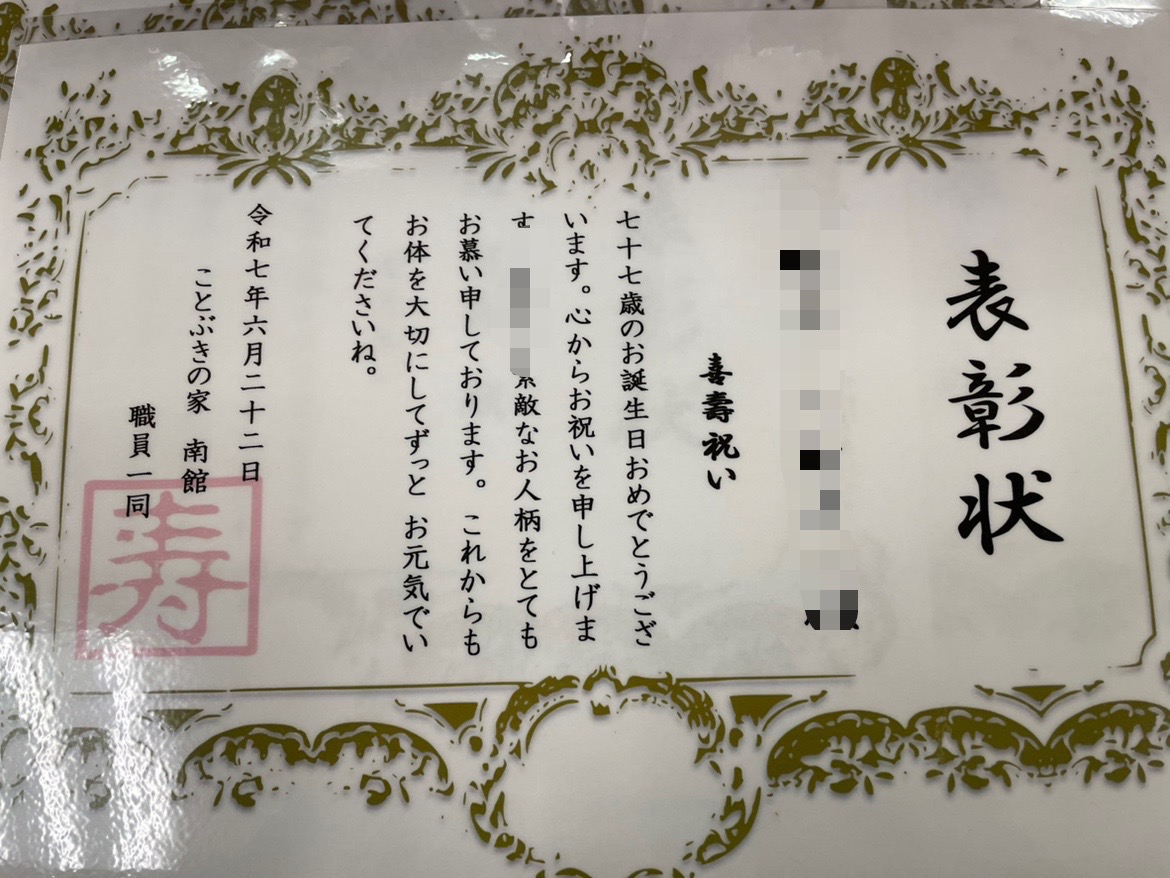 表彰状
喜壽祝い
七十七歳のお誕生日おめでとうござ
います。心からお祝いを申し上げま
す
素敵なお人柄をとても
お慕い申しております。これからも
お体を大切にしてずっと お元気でい
てくださいね。
令和七年六月二十二日
ことぶきの家 南館
職員一同
寿